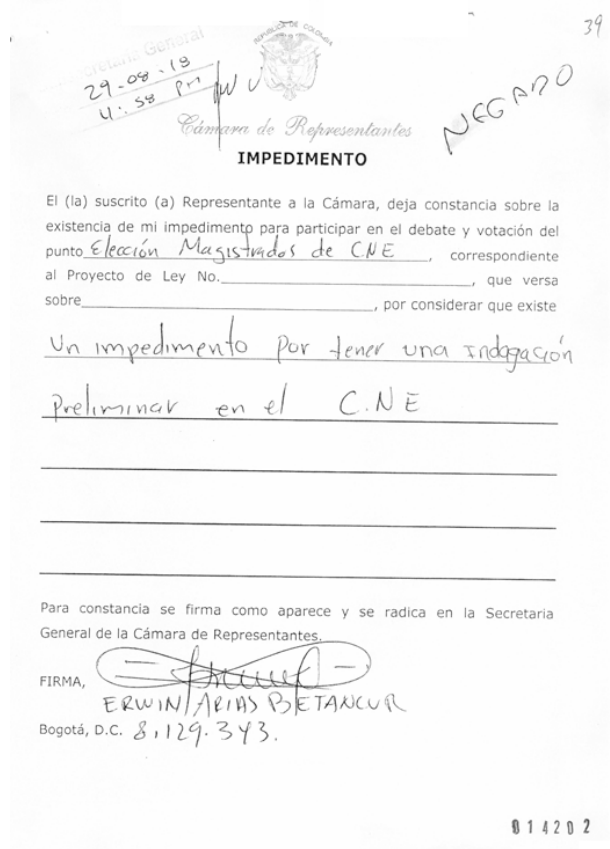 39
Secretaria General
29-08-18
4:58 pm
REPUBLICA DE COLOMBIA
NEGADO
Cámara de Representantes
IMPEDIMENTO
El (la) suscrito (a) Representante a la Cámara, deja constancia sobre la
existencia de mi impedimento para participar en el debate y votación del
punto Elección Magistrados de CNE, correspondiente
al Proyecto de Ley No.____, que versa
sobre____, por considerar que existe
Un impedimento por tener una indagación
Preliminar en el C.NE
Para constancia se firma como aparece y se radica en la Secretaria
General de la Cámara de Representantes.
FIRMA,
ERWIN ARIAS BETANCUR
Bogotá, D.C. 8,129.343.
014202